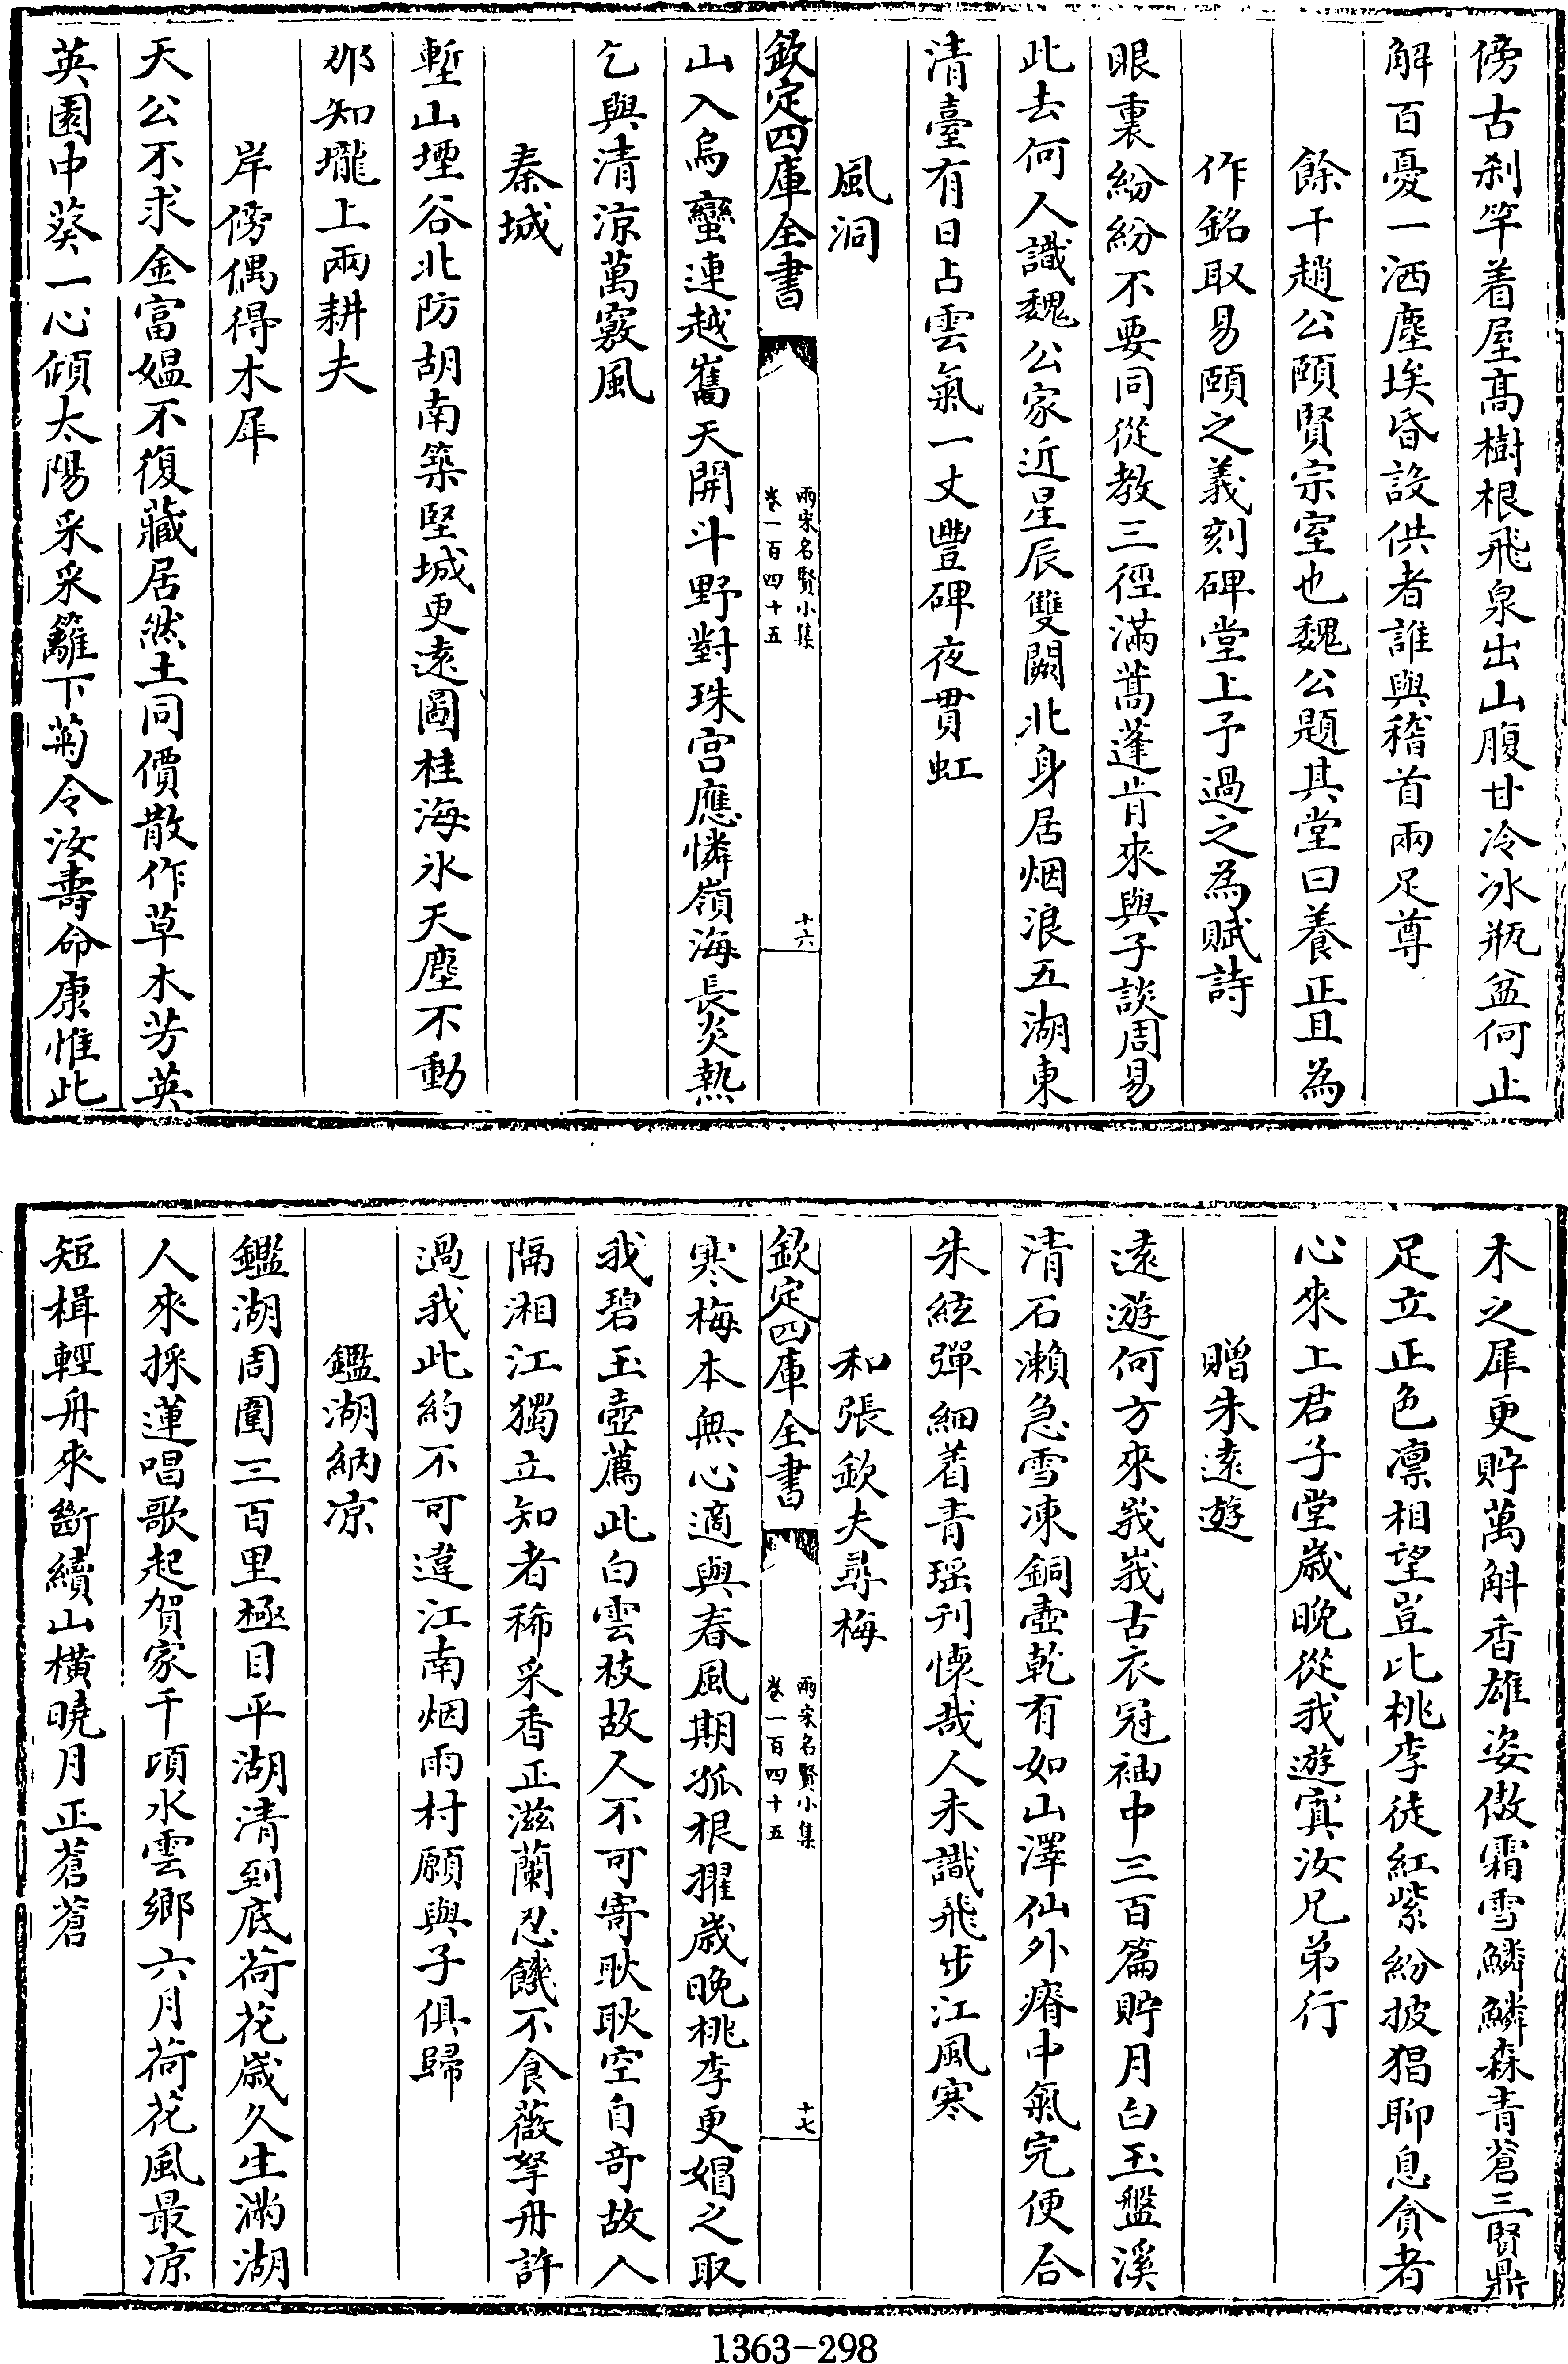 傍古刹竿着屋髙樹根飛泉出山腹甘冷冰瓶盆何止
解百憂一洒塵埃昏設供者誰與稽首兩足尊
餘干趙公頤賢宗室也魏公題其堂曰養正且為
作銘取易頤之義刻碑堂上予過之為賦詩
眼裏紛紛不要同從教三徑滿蒿蓬肯來與子談周易
此去何人識魏公家近星辰雙闕北身居烟浪五湖東
清臺有日占雲氣一丈豐碑夜貫虹
風洞
欽定四庫全書
兩宋名賢小集
卷一百四十五
十六
山入烏蠻連越嶲天開斗野對珠宫應憐嶺海長炎熱
乞與清凉萬竅風
秦城
塹山堙谷北防胡南築堅城更逺圖桂海氷天塵不動
那知壠上兩耕夫
岸傍偶得木犀
天公不求金富媼不復藏居然土同價散作草木芳英
英園中葵一心傾太陽采采籬下菊令汝壽命康惟此
木之犀更貯萬斛香雄姿傲霜雪鱗鱗森青蒼三賢鼎
足立正色凛相望豈比桃李徒紅紫紛披猖聊息貪者
心來上君子堂歲晚從我遊寘汝兄弟行
贈朱逺遊
逺遊何方來峩峩古衣冠袖中三百篇貯月白玉盤溪
清石瀨急雪凍銅壺乾有如山澤仙外瘠中氣完便合
朱絃彈細着青瑶刋懷哉人未識飛步江風寒
和張欽夫尋梅
欽定四庫全書
兩宋名賢小集
卷一百四十五
十七
寒梅本無心適與春風期孤根擢歲晚桃李更媢之取
我碧玉壺薦此白雲枝故人不可寄耿耿空自奇故人
隔湘江獨立知者稀采香正滋蘭忍饑不食薇拏舟許
過我此約不可違江南烟雨村願與子俱歸
鑑湖納凉
鑑湖周圍三百里極目平湖清到底荷花歲久生滿湖
人來採蓮唱歌起賀家千頃水雲鄉六月荷花風最凉
短楫輕舟來斷續山橫曉月正蒼蒼
1363-298